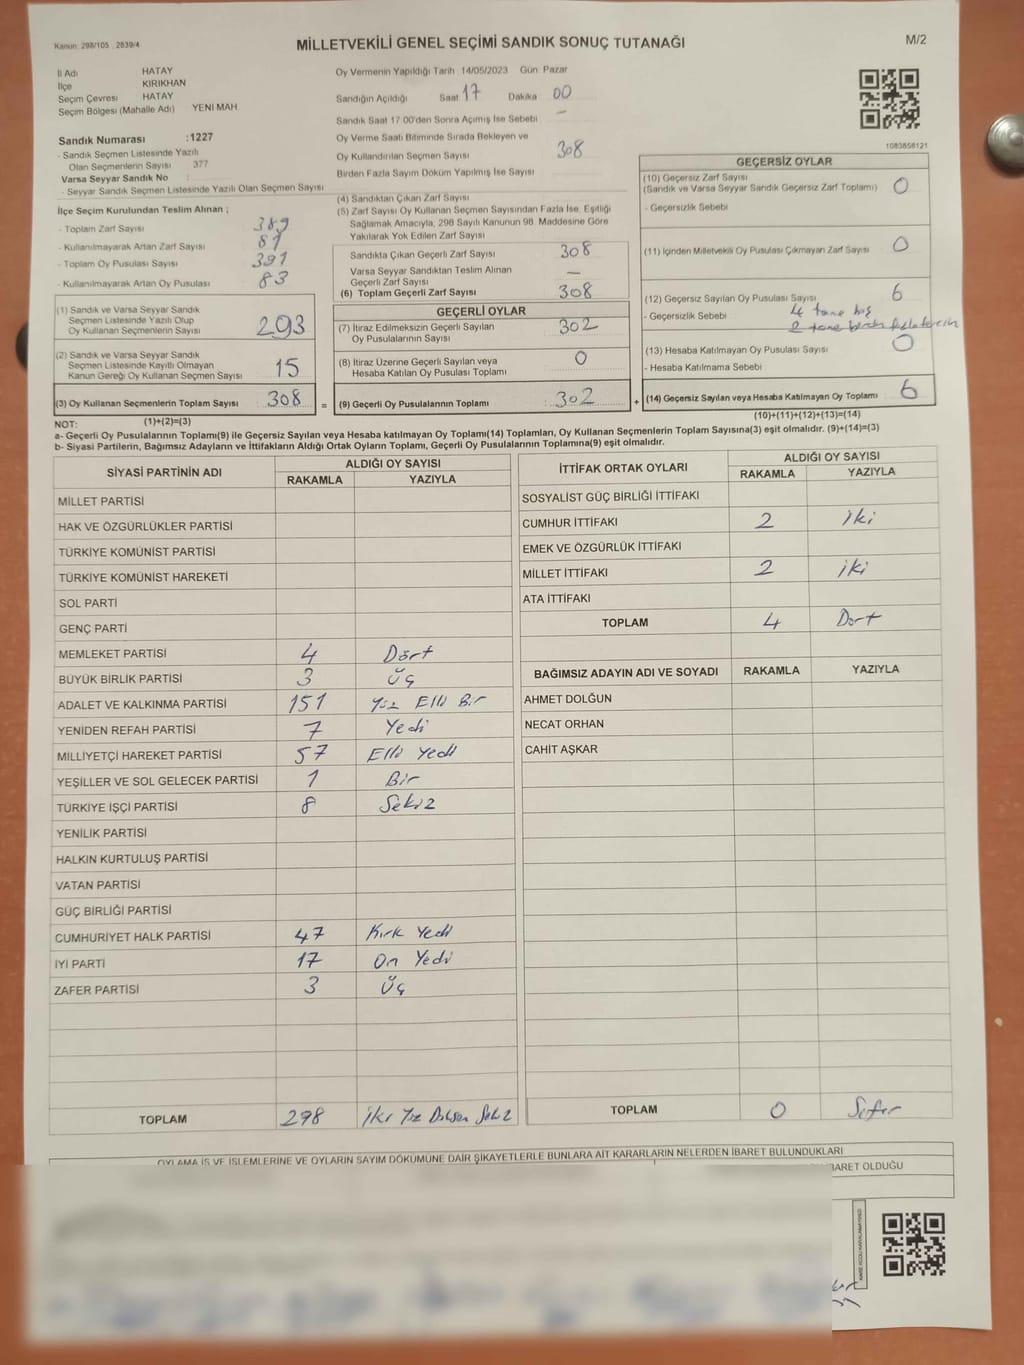 Kanun: 298/105, 2839/4
MİLLETVEKİLİ GENEL SEÇİMİ SANDIK SONUÇ TUTANAĞI
M/2
İl Adı HATAY
İlçe KIRIKHAN
Seçim Çevresi HATAY
Seçim Bölgesi (Mahalle Adı) YENİ MAH
Sandık Numarası : 1227
- Sandık Seçmen Listesinde Yazılı
Olan Seçmenlerin Sayısı 377
Varsa Seyyar Sandık No :
- Seyyar Sandık Seçmen Listesinde Yazılı Olan Seçmen Sayısı
İlçe Seçim Kurulundan Teslim Alınan ;
- Toplam Zarf Sayısı 389
- Kullanılmayarak Artan Zarf Sayısı 81
- Toplam Oy Pusulası Sayısı 391
- Kullanılmayarak Artan Oy Pusulası 83
(1) Sandık ve Varsa Seyyar Sandık
Seçmen Listesinde Yazılı Olup
Oy Kullanan Seçmenlerin Sayısı 293
(2) Sandık ve Varsa Seyyar Sandık
Seçmen Listesinde Kayıtlı Olmayan
Kanun Gereği Oy Kullanan Seçmen Sayısı 15
(3) Oy Kullanan Seçmenlerin Toplam Sayısı 308
(1)+(2)=(3)
Oy Vermenin Yapıldığı Tarih :14/05/2023 Gün Pazar
Sandığın Açıldığı Saat 17 Dakika 00
Sandık Saat 17:00'den Sonra Açılmış İse Sebebi –
Oy Verme Saati Bitiminde Sırada Bekleyen ve
Oy Kullandırılan Seçmen Sayısı 308
Birden Fazla Sayım Döküm Yapılmış İse Sayısı
(4) Sandıktan Çıkan Zarf Sayısı
(5) Zarf Sayısı Oy Kullanan Seçmen Sayısından Fazla İse, Eşitliği
Sağlamak Amacıyla, 298 Sayılı Kanunun 98. Maddesine Göre
Yakılarak Yok Edilen Zarf Sayısı
Sandıkta Çıkan Geçerli Zarf Sayısı 308
Varsa Seyyar Sandıktan Teslim Alınan
Geçerli Zarf Sayısı –
(6) Toplam Geçerli Zarf Sayısı 308
GEÇERLİ OYLAR
(7) İtiraz Edilmeksizin Geçerli Sayılan
Oy Pusulalarının Sayısı 302
(8) İtiraz Üzerine Geçerli Sayılan veya
Hesaba Katılan Oy Pusulası Toplamı 0
= (9) Geçerli Oy Pusulalarının Toplamı 302
1083858121
GEÇERSİZ OYLAR
(10) Geçersiz Zarf Sayısı
(Sandık ve Varsa Seyyar Sandık Geçersiz Zarf Toplamı) 0
- Geçersizlik Sebebi
(11) İçinden Milletvekili Oy Pusulası Çıkmayan Zarf Sayısı 0
(12) Geçersiz Sayılan Oy Pusulası Sayısı 6
- Geçersizlik Sebebi 4 tane boş
2 tane birden fazla tercih
(13) Hesaba Katılmayan Oy Pusulası Sayısı 0
- Hesaba Katılmama Sebebi
+ (14) Geçersiz Sayılan veya Hesaba Katılmayan Oy Toplamı 6
(10)+(11)+(12)+(13)=(14)
NOT:
a- Geçerli Oy Pusulalarının Toplamı(9) ile Geçersiz Sayılan veya Hesaba katılmayan Oy Toplamı(14) Toplamları, Oy Kullanan Seçmenlerin Toplam Sayısına(3) eşit olmalıdır. (9)+(14)=(3)
b- Siyasi Partilerin, Bağımsız Adayların ve İttifakların Aldığı Ortak Oyların Toplamı, Geçerli Oy Pusulalarının Toplamına(9) eşit olmalıdır.
SİYASİ PARTİNİN ADI
ALDIĞI OY SAYISI
RAKAMLA YAZIYLA
MİLLET PARTİSİ
HAK VE ÖZGÜRLÜKLER PARTİSİ
TÜRKİYE KOMÜNİST PARTİSİ
TÜRKİYE KOMÜNİST HAREKETİ
SOL PARTİ
GENÇ PARTİ
MEMLEKET PARTİSİ 4 Dört
BÜYÜK BİRLİK PARTİSİ 3 Üç
ADALET VE KALKINMA PARTİSİ 151 Yüz Elli Bir
YENİDEN REFAH PARTİSİ 7 Yedi
MİLLİYETÇİ HAREKET PARTİSİ 57 Elli Yedi
YEŞİLLER VE SOL GELECEK PARTİSİ 1 Bir
TÜRKİYE İŞÇİ PARTİSİ 8 Sekiz
YENİLİK PARTİSİ
HALKIN KURTULUŞ PARTİSİ
VATAN PARTİSİ
GÜÇ BİRLİĞİ PARTİSİ
CUMHURİYET HALK PARTİSİ 47 Kırk Yedi
İYİ PARTİ 17 On Yedi
ZAFER PARTİSİ 3 Üç
TOPLAM 298 İki Yüz Doksan Sekiz
İTTİFAK ORTAK OYLARI
ALDIĞI OY SAYISI
RAKAMLA YAZIYLA
SOSYALİST GÜÇ BİRLİĞİ İTTİFAKI
CUMHUR İTTİFAKI 2 İki
EMEK VE ÖZGÜRLÜK İTTİFAKI
MİLLET İTTİFAKI 2 İki
ATA İTTİFAKI
TOPLAM 4 Dört
BAĞIMSIZ ADAYIN ADI VE SOYADI RAKAMLA YAZIYLA
AHMET DOLĞUN
NECAT ORHAN
CAHİT AŞKAR
TOPLAM 0 Sıfır
OYLAMA İŞ VE İŞLEMLERİNE VE OYLARIN SAYIM DÖKÜMÜNE DAİR ŞİKAYETLERLE BUNLARA AİT KARARLARIN NELERDEN İBARET BULUNDUKLARI
BARET OLDUĞU